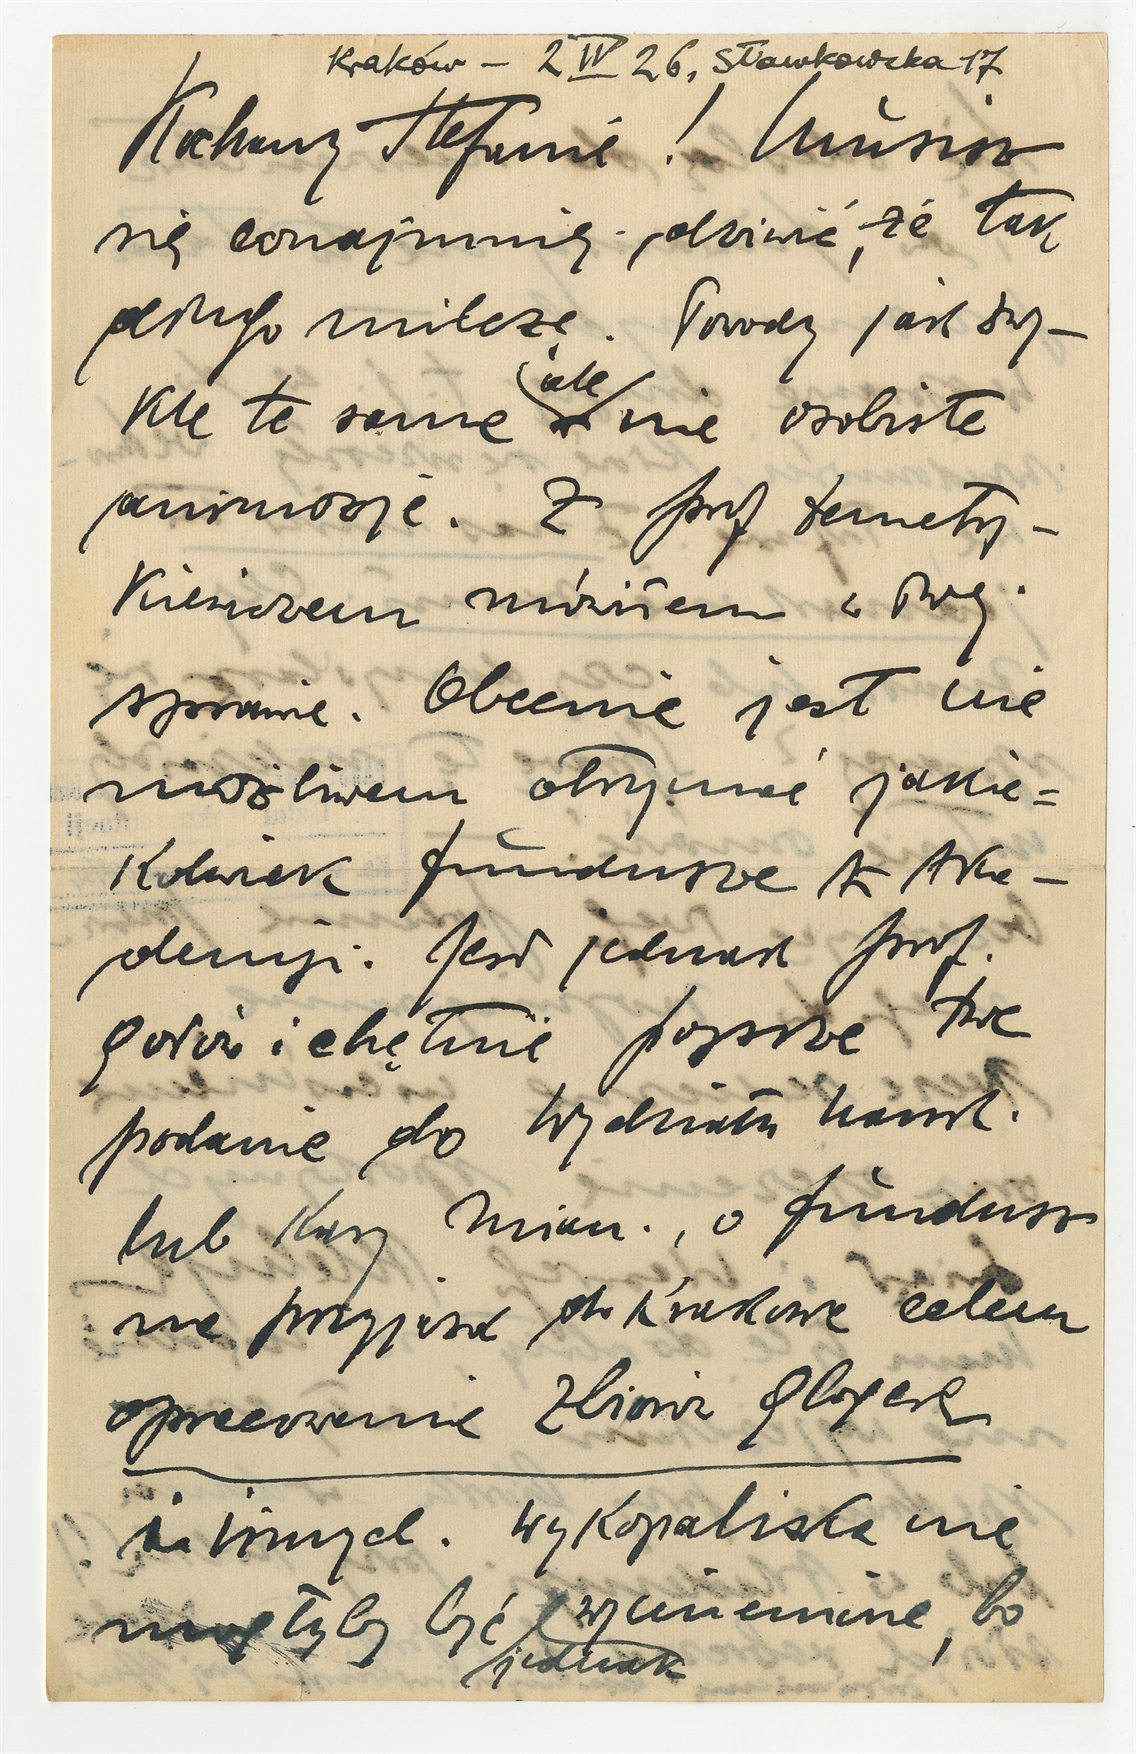 Kraków – 2 IV 26, Sławkowska 17
Kochany Stefanie! Musisz
się conajmniej dziwić, że tak
długo milczę. Powody jak zwy-
kle te same ale nie osobiste
animozje. Z prof Demetry-
kiewiczem mówiłem o Twej
sprawie. Obecnie jest nie
możliwem otrzymać jakie=
kolwiek fundusze z Aka-
demji. Jest jednak prof.
gotów i chętnie poprze Twe
podanie do Wydziału nauk.
lub Kasy Mian., o fundusz
na przyjazd do Krakowa celem
opracowania zbioru Glogera
i innych. Wykopaliska nie
mogłyby być jednak wymienione, bo